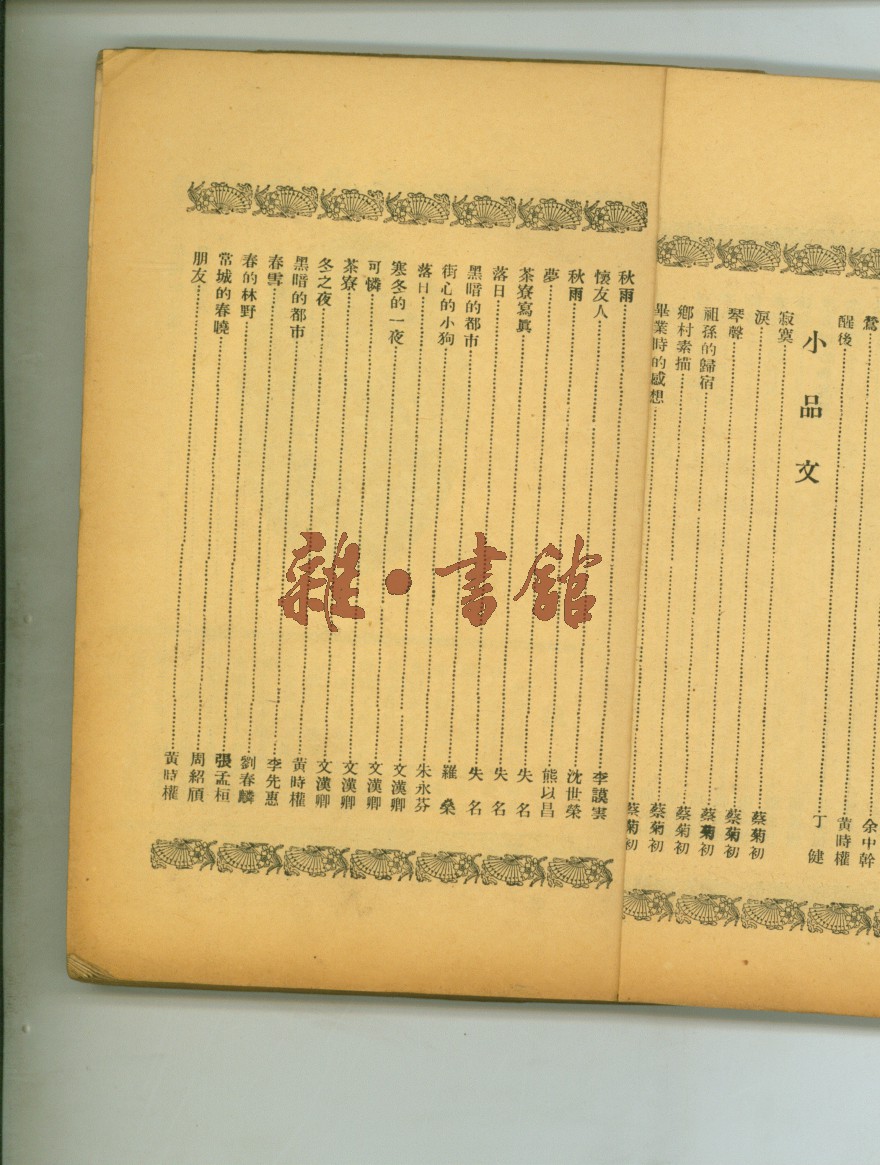 余中幹
鶯……黃時權
醒後……丁 健
小品文
寂寞……蔡菊初
淚……蔡菊初
琴聲……蔡菊初
祖孫的歸宿……蔡菊初
鄉村素描……蔡菊初
畢業時的感想……蔡菊初
秋雨……李謨雲
懷友人……沈世榮
秋雨……熊以昌
夢……失 名
茶寮寫眞……失 名
落日……失 名
黑暗的都市……羅 燊
街心的小狗……朱永芬
落日……文漢卿
寒冬的一夜……文漢卿
可憐……文漢卿
茶寮……文漢卿
冬之夜……黃時權
黑暗的都市……李先惠
春雪……劉春麟
春的林野……張孟桓
常城的春曉……周紹頎
朋友……黃時權
雜·書館